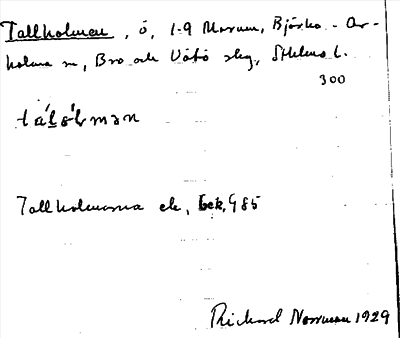 Tallholmen, ö, 1-9 Marum, Björkö-Ar-
holma sn, Bro och Vätö skg, Sthlms l.
300
Tallholmarna ek, 985
Rickard Norrman 1929